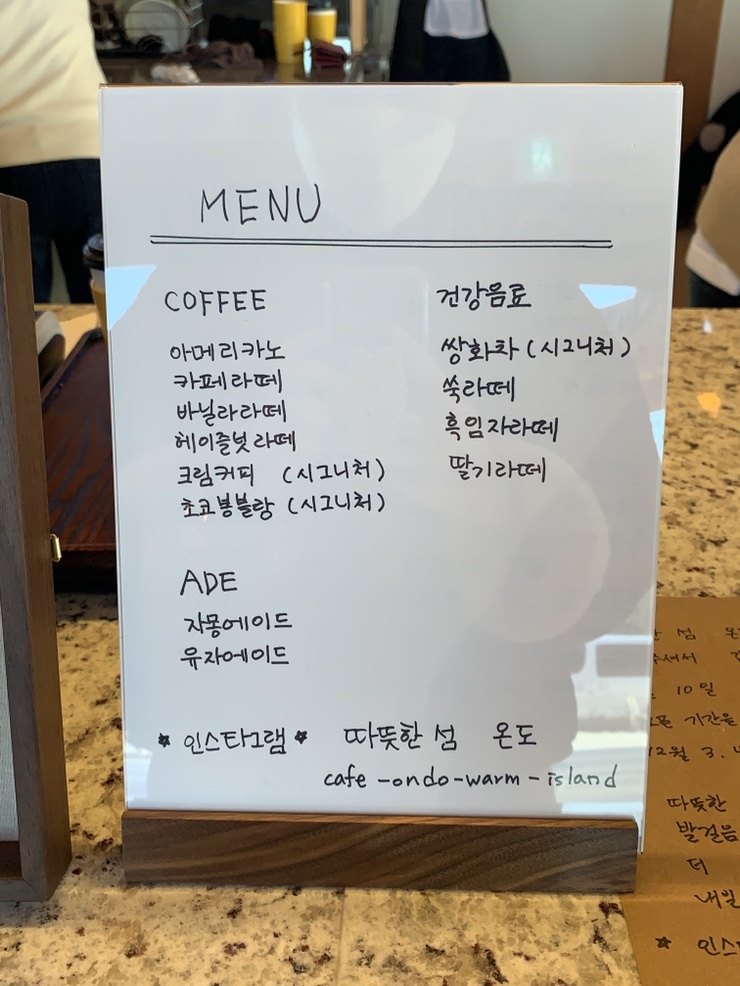 MENU
COFFEE
아메리카노
카페라떼
바닐라라떼
헤이즐넛라떼
크림커피 (시그니처)
초코봉블랑 (시그니처)
건강음료
쌍화차 (시그니처)
쑥라떼
흑임자라떼
딸기라떼
ADE
자몽에이드
유자에이드
* 인스타그램 * 따뜻한 섬 온도
cafe-ondo-warm-island
섬
10일
기간을
12월 3.
따뜻한
발걸음
더
내일
*